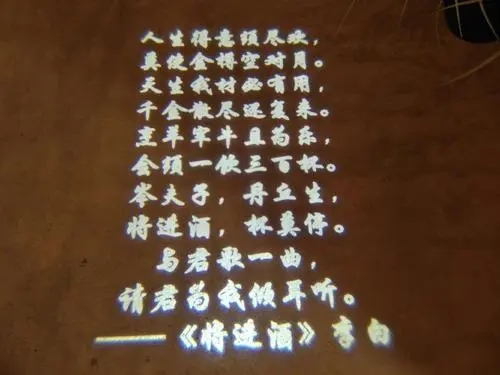 人生得意须尽欢，
莫使金樽空对月。
天生我材必有用，
千金散尽还复来。
烹羊宰牛且为乐，
会须一饮三百杯。
岑夫子，丹丘生，
将进酒，杯莫停。
与君歌一曲，
请君为我倾耳听。
——《将进酒》李白